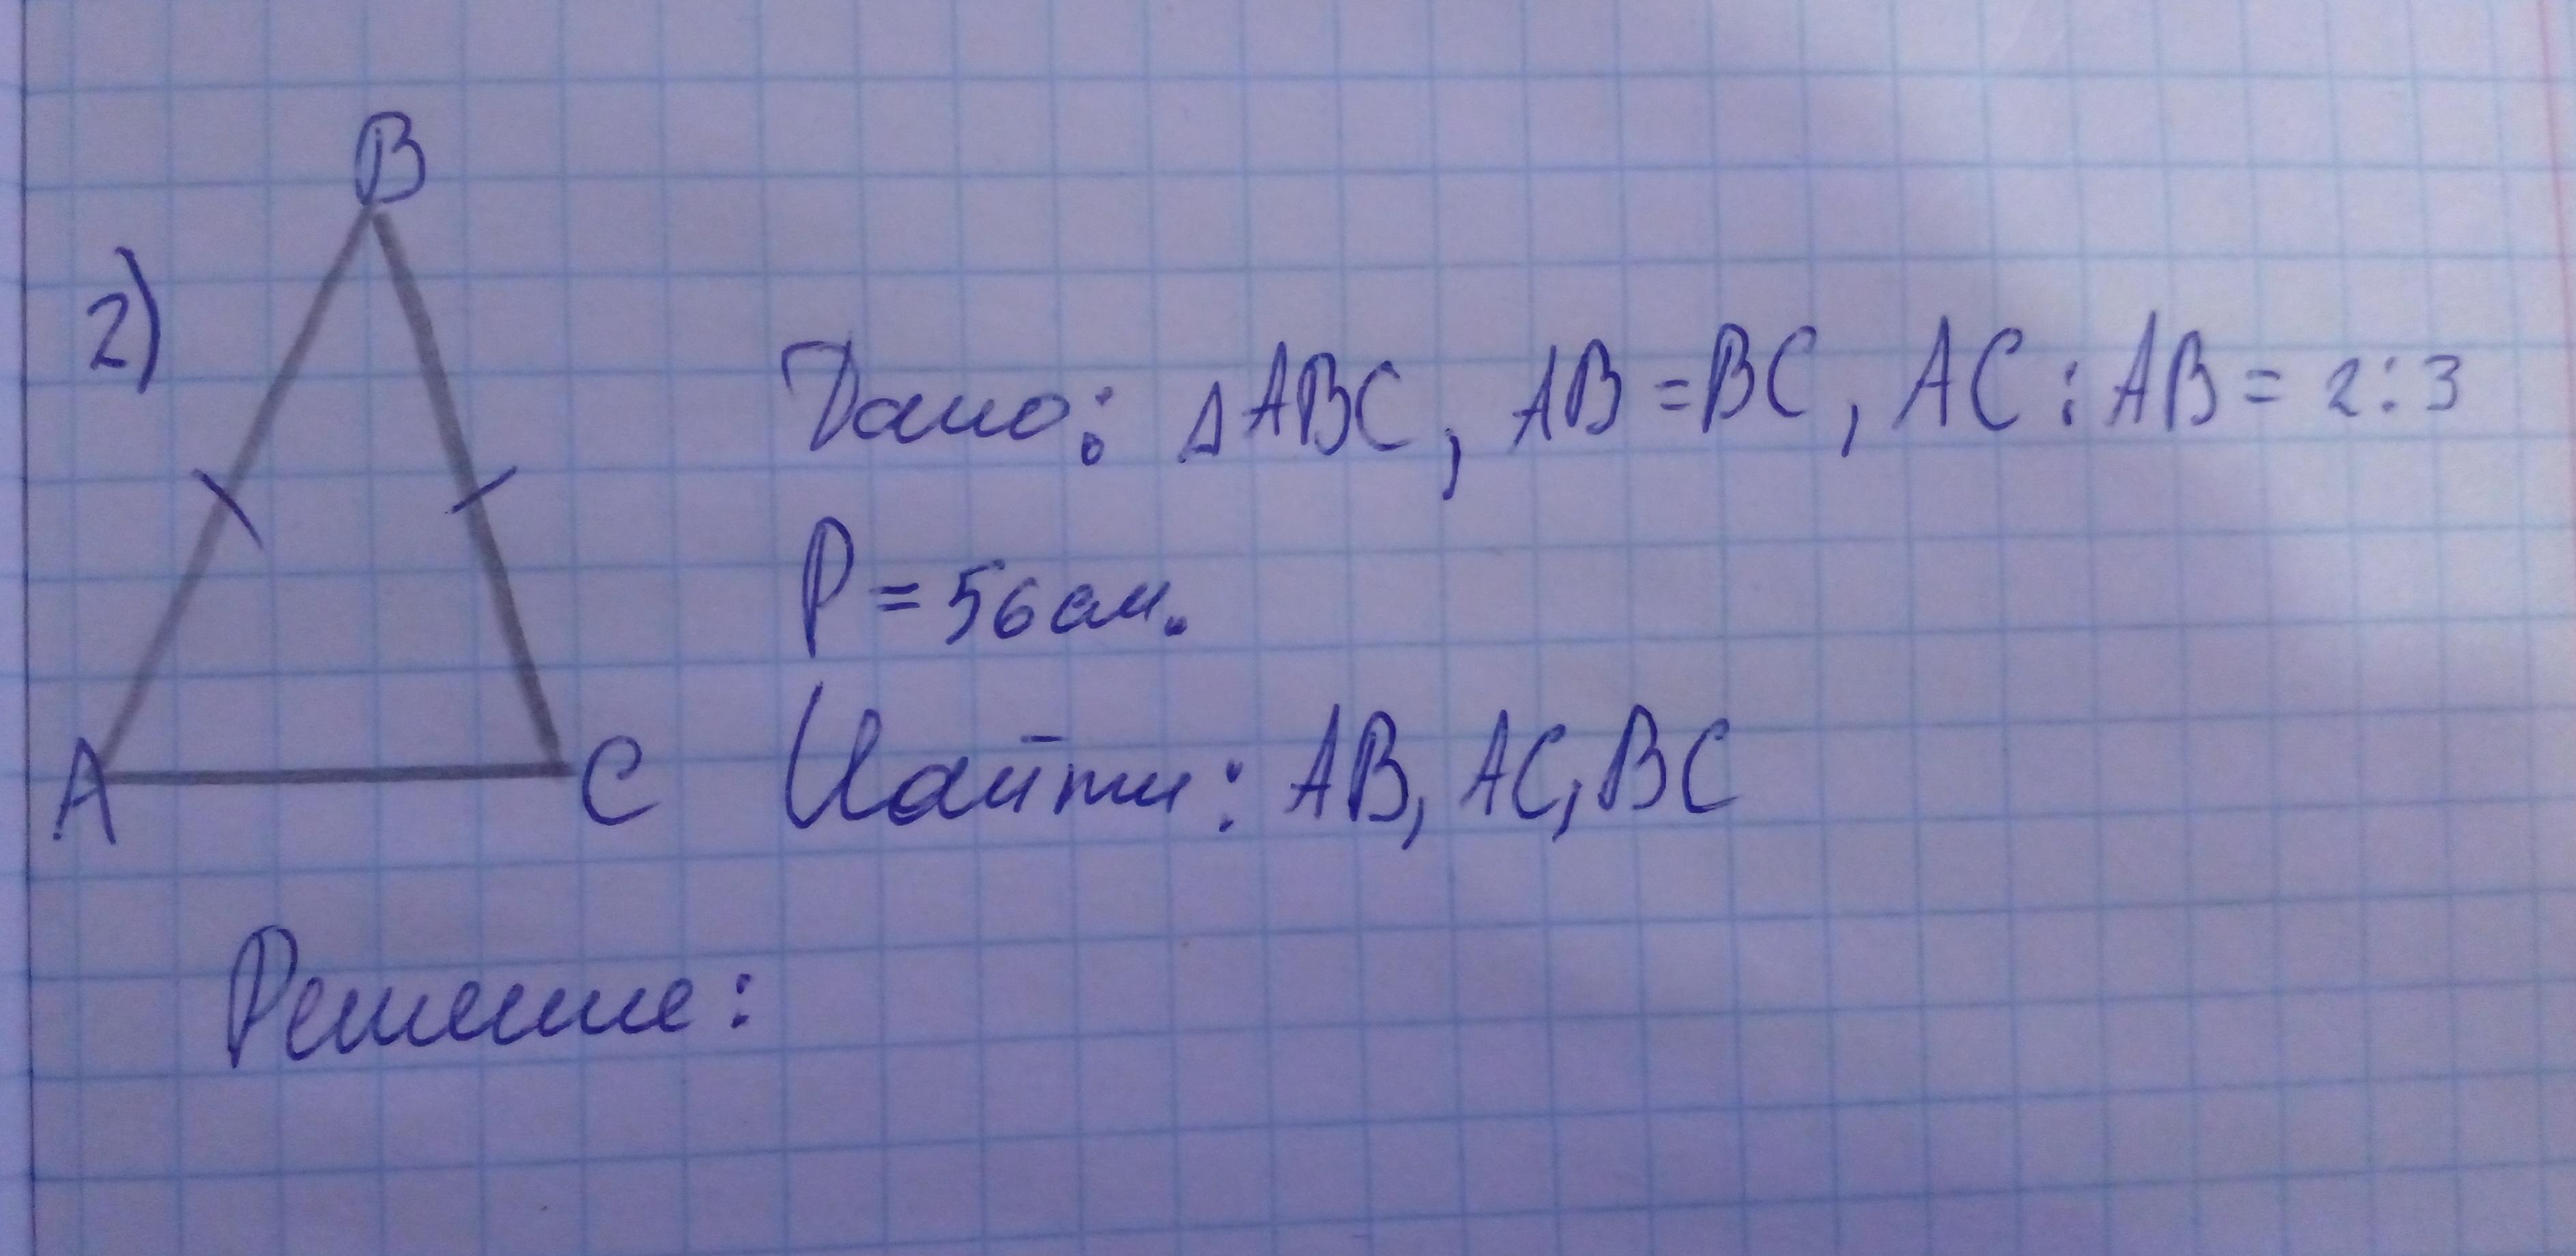 2)
B
A
C
Дано: △ABC, AB=BC, AC:AB=2:3
P=56см.
Найти: AB, AC, BC
Решение: